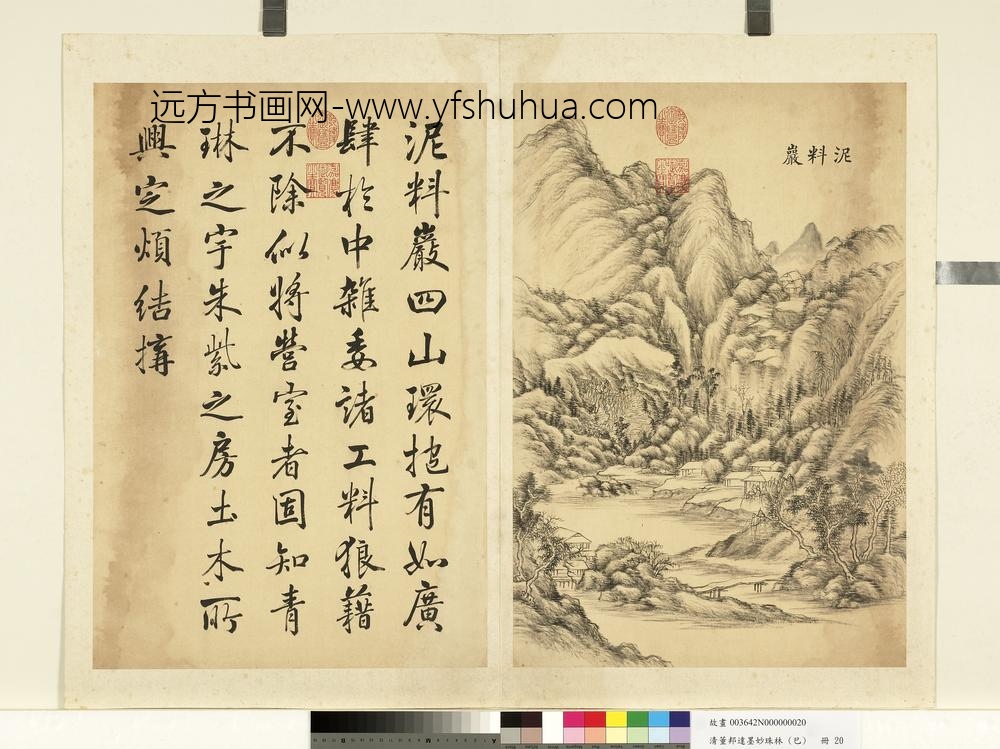 远方书画网-www.yfshuhua.com
泥料巖
泥料巖四山環抱有如廣
肆於中雜委諸工料狼藉
不除似將營室者固知青
琳之宇朱紫之房土木所
興定煩結搆
故畫 003642N000000020
清董邦達墨妙珠林(巳) 冊 20